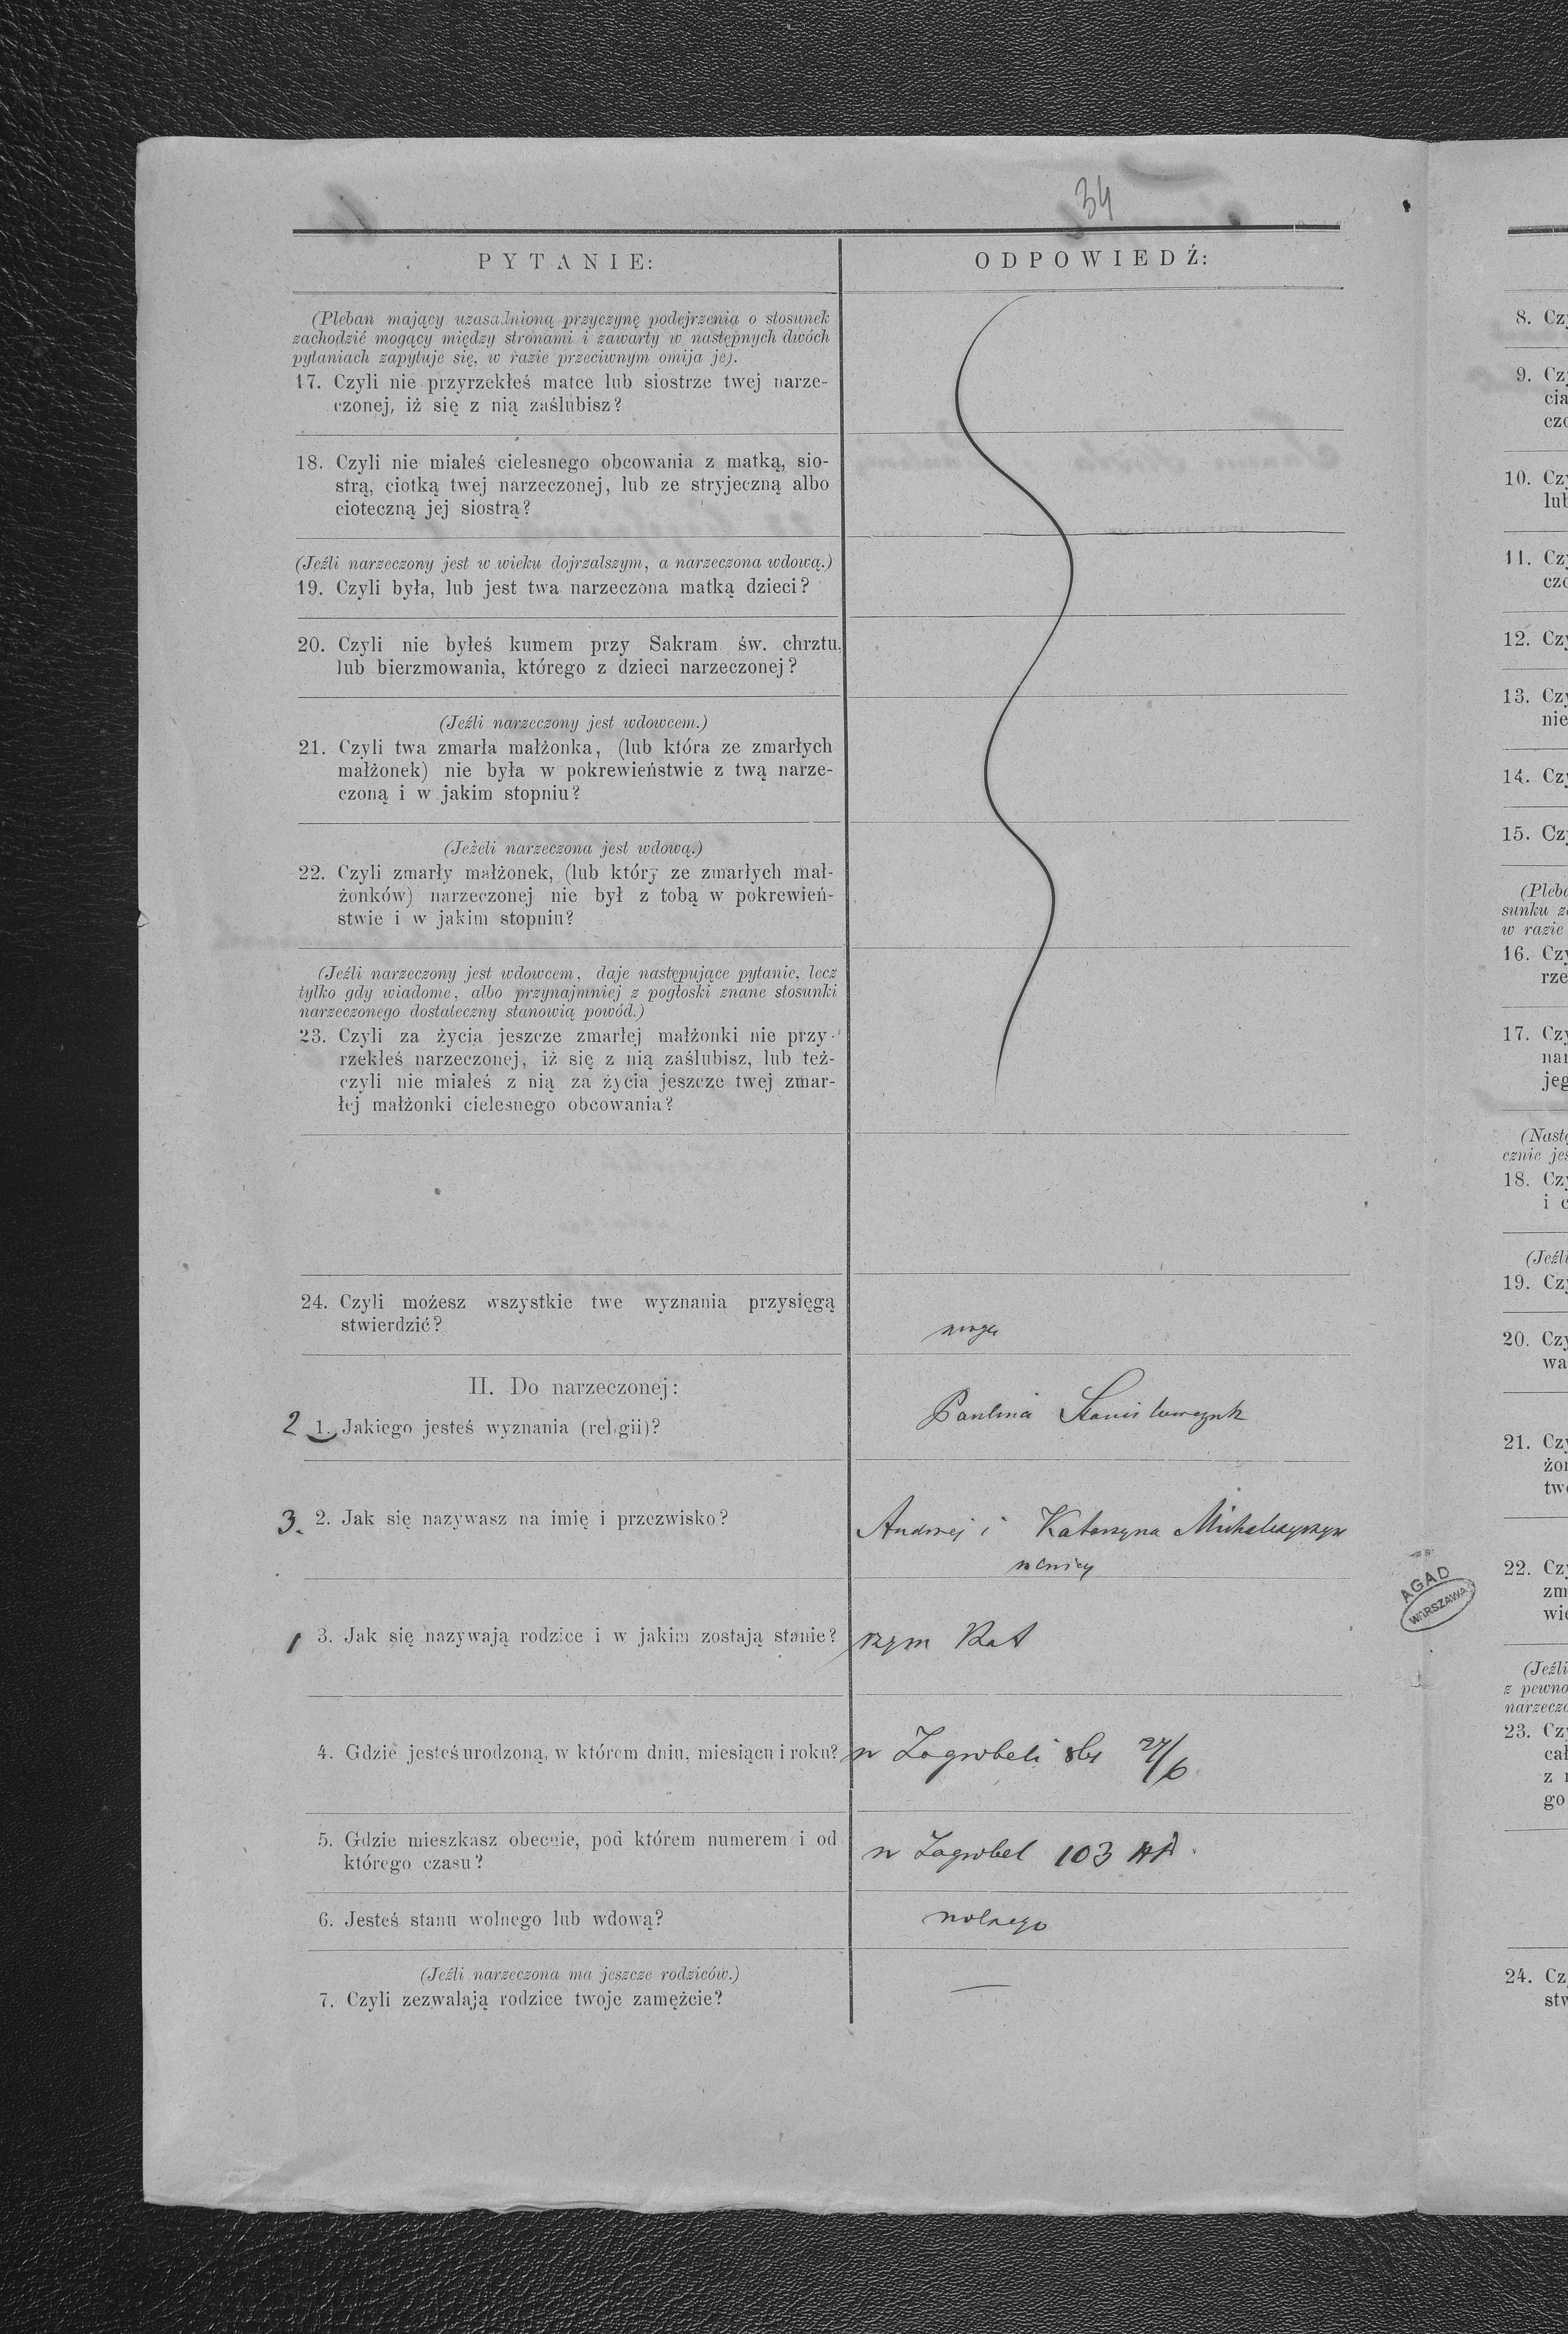 34
PYTANIE:
ODPOWIEDŹ:
(Pleban mający uzasadnioną przyczynę podejrzenia o stosunek
zachodzić mogący między stronami i zawarty w następnych dwóch
pytaniach zapytuje się, w razie przeciwnym omija je).
17. Czyli nie przyrzekłeś matce lub siostrze twej narze-
czonej, iż się z nią zaślubisz?
18. Czyli nie miałeś cielesnego obcowania z matką, sio-
strą, ciotką twej narzeczonej, lub ze stryjeczną albo
cioteczną jej siostrą?
(Jeźli narzeczony jest w wieku dojrzalszym, a narzeczona wdową.)
19. Czyli była, lub jest twa narzeczona matką dzieci?
20. Czyli nie byłeś kumem przy Sakram. św. chrztu,
lub bierzmowania, którego z dzieci narzeczonej?
(Jeźli narzeczony jest wdowcem.)
21. Czyli twa zmarła małżonka, (lub która ze zmarłych
małżonek) nie była w pokrewieństwie z twą narze-
czoną i w jakim stopniu?
(Jeżeli narzeczona jest wdową.)
22. Czyli zmarły małżonek, (lub który ze zmarłych mał-
żonków) narzeczonej nie był z tobą w pokrewień-
stwie i w jakim stopniu?
(Jeźli narzeczony jest wdowcem, daje następujące pytanie, lecz
tylko gdy wiadome, albo przynajmniej z pogłoski znane stosunki
narzeczonego dostateczny stanowią powód.)
23. Czyli za życia jeszcze zmarłej małżonki nie przy-
rzekłeś narzeczonej, iż się z nią zaślubisz, lub też
czyli nie miałeś z nią za życia jeszcze twej zmar-
łej małżonki cielesnego obcowania?
24. Czyli możesz wszystkie twe wyznania przysięgą
stwierdzić?
mogę
II. Do narzeczonej:
2 1. Jakiego jesteś wyznania (religii)?
Paulina
3. 2. Jak się nazywasz na imię i przezwisko?
Andrzej i Katarzyna
rolnicy
1 3. Jak się nazywają rodzice i w jakim zostają stanie?
rzym Kat
4. Gdzie jesteś urodzoną, w którem dniu, miesiącu i roku?
w Zagrobeli 27/6
5. Gdzie mieszkasz obecnie, pod którem numerem i od
którego czasu?
w Zagrobel 103
6. Jesteś stanu wolnego lub wdową?
wolnego
(Jeźli narzeczona ma jeszcze rodziców.)
7. Czyli zezwalają rodzice twoje zamężcie?
—
AGAD
WARSZAWA
8. Cz
9. Cz
cia
czo
10. Cz
lub
11. Cz
czo
12. Cz
13. Cz
nie
14. Cz
15. Cz
(Pleba
sunku z
w razie
16. Cz
rze
17. Cz
nar
jeg
(Nast
cznie je
18. Cz
i c
(Jeźli
19. Cz
20. Cz
wa
21. Cz
żon
tw
22. Cz
zm
wie
(Jeźli
z pewno
narzecz
23. Cz
cał
z
go
24. Cz
stw